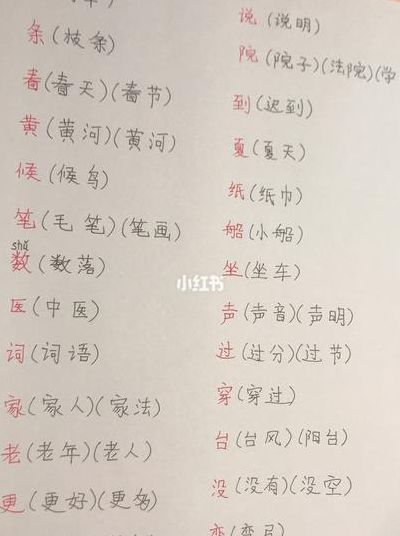 条(枝条)
春(春天)(春节)
黄(黄河)(黄河)
候(候鸟)
笔(毛笔)(笔画)
shǔ
数(数落)
医(中医)
词(词语)
家(家人)(家法)
老(老年)(老人)
更(更好)(更多)
说(说明)
院(院子)(法院)(学
到(迟到)
夏(夏天)
纸(纸巾)
船(小船)
坐(坐车)
声(声音)(声明)
过(过分)(过节)
穿(穿过)
台(台风)(阳台)
没(没有)(没空)
小红书